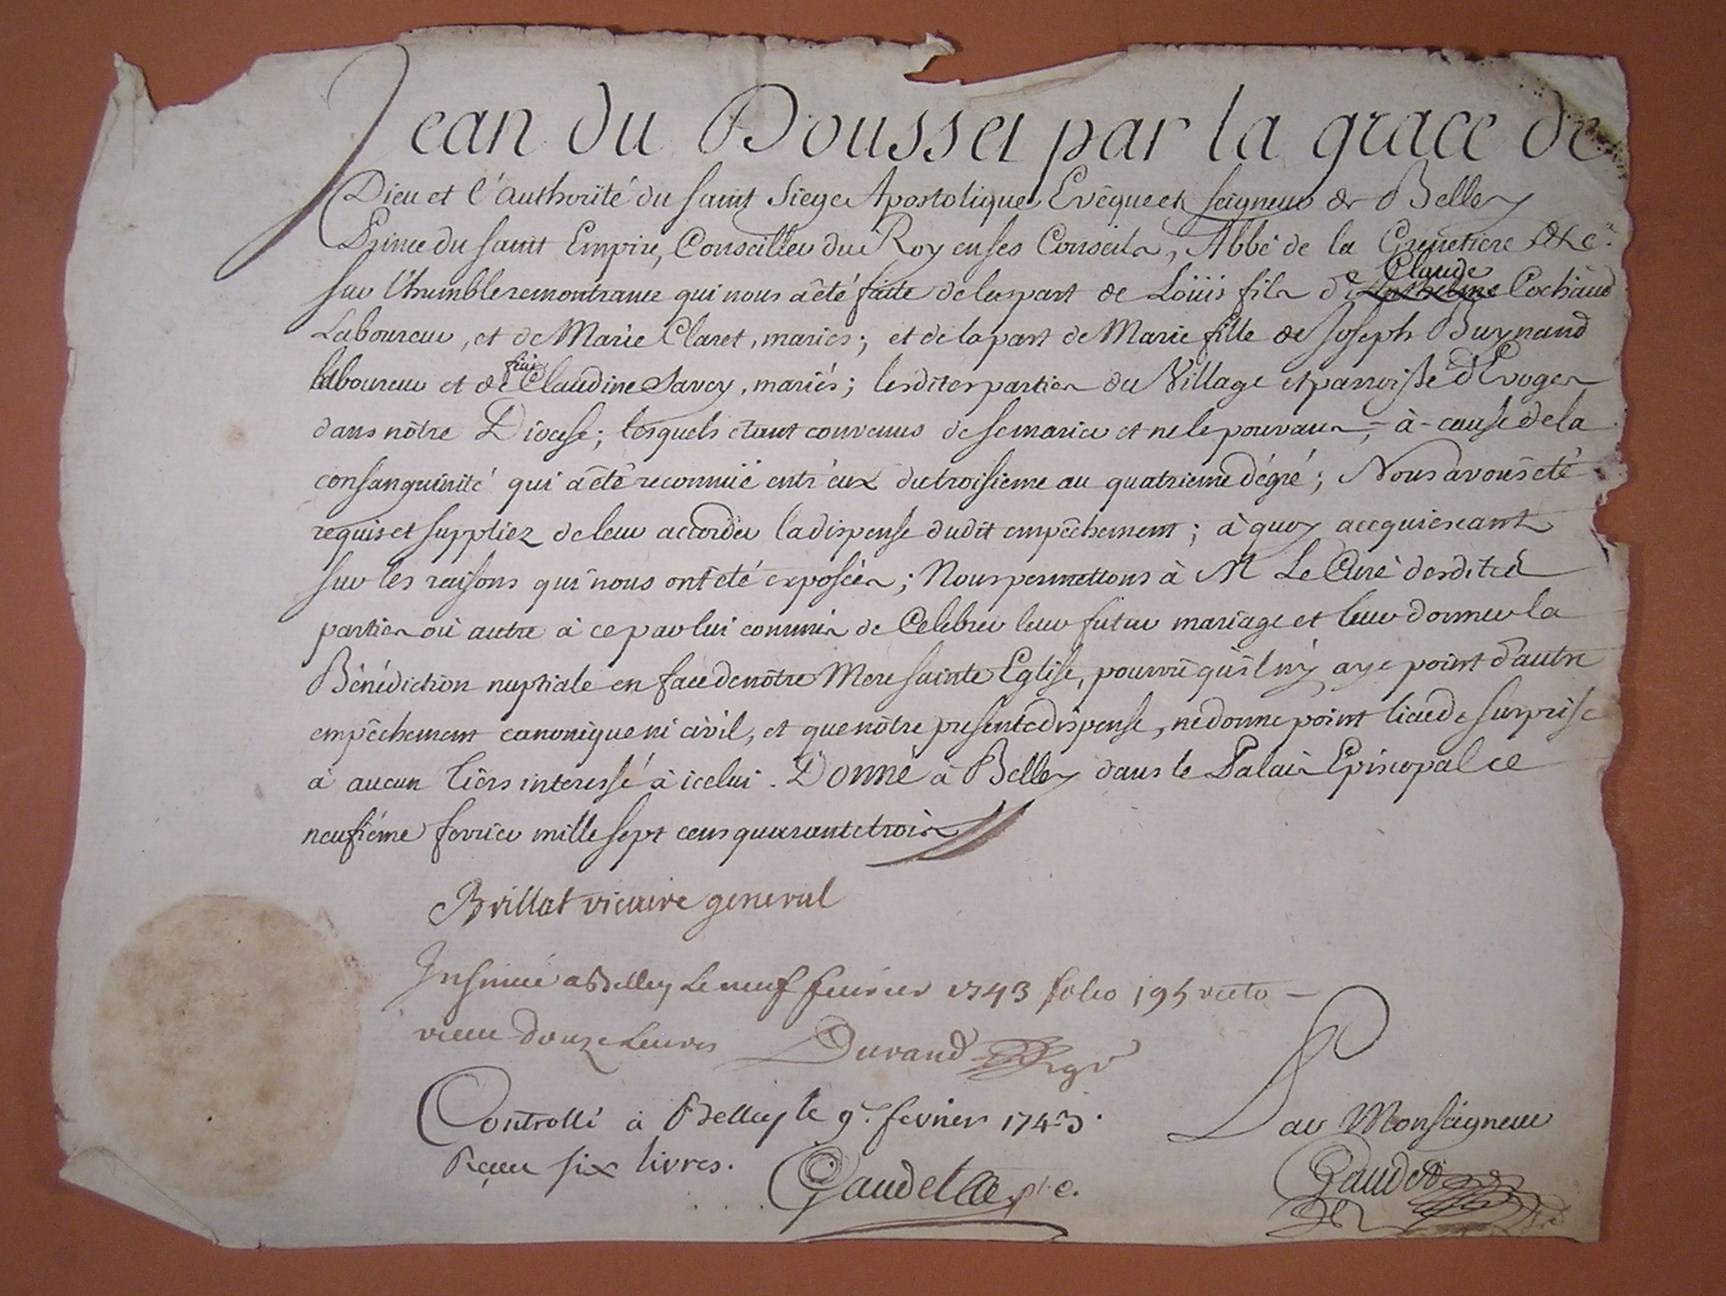 Jean du Dousset par la grace de
Dieu et l'authorité du saint Siege Apostolique, Evêque et seigneur de Belley
Prince du saint Empire, Conseiller du Roy en ses Conseils, Abbé de la Grenetiere &c.ª
sur l'humble remontrance qui nous a été faite de la part de Loüis fils de Claude Cochaud
Laboureur, et de Marie Claret, mariés; et de la part de Marie fille de Joseph Buynand
laboureur et de feüe Claudine Savey, mariés; lesdites parties du Village et parroisse d'Evoges
dans nôtre Diocese; lesquels étant convenus de se marier et ne le pouvant, à-cause de la
consanguinité qui a été reconnuë entr'eux du troisieme au quatrieme dégré; Nous avons été
requis et suppliez de leur accorder la dispense dudit empêchement; à quoy acquiescant
sur les raisons qui nous ont été exposées; Nous permettons à Mr Le Curé desdites
parties où autre à ce par lui commis de Celebrer leur futur mariage et leur donner la
Bénédiction nuptiale en face de nôtre Mere sainte Eglise, pourvû qu'il n'y aye point d'autre
empêchement canonique ni civil, et que nôtre presente dispense, ne donne point lieu de surprise
à aucun tiers interessé à icelui. Donné à Belley dans le Palais Episcopal ce
neufiéme fevrier mille sept cens quarante trois
Brillat vicaire general
Insinué a Belley Le neuf fevrier 1743 folio 195 recto
receu douze Livres Durand
Controllé à Belley le 9.e fevrier 1743.
Receu six livres. Gaudet
Par Monseigneur
Gaudet